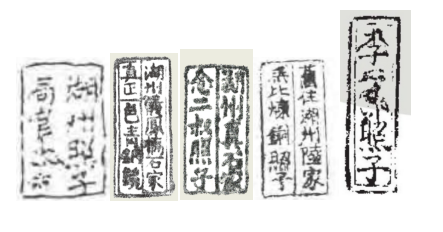 湖州照子
湖州儀鳳橋石家
真正一色青銅鏡
湖州真石家
念二叔照子
舊住湖州陸家
無比煉銅照子
李照子